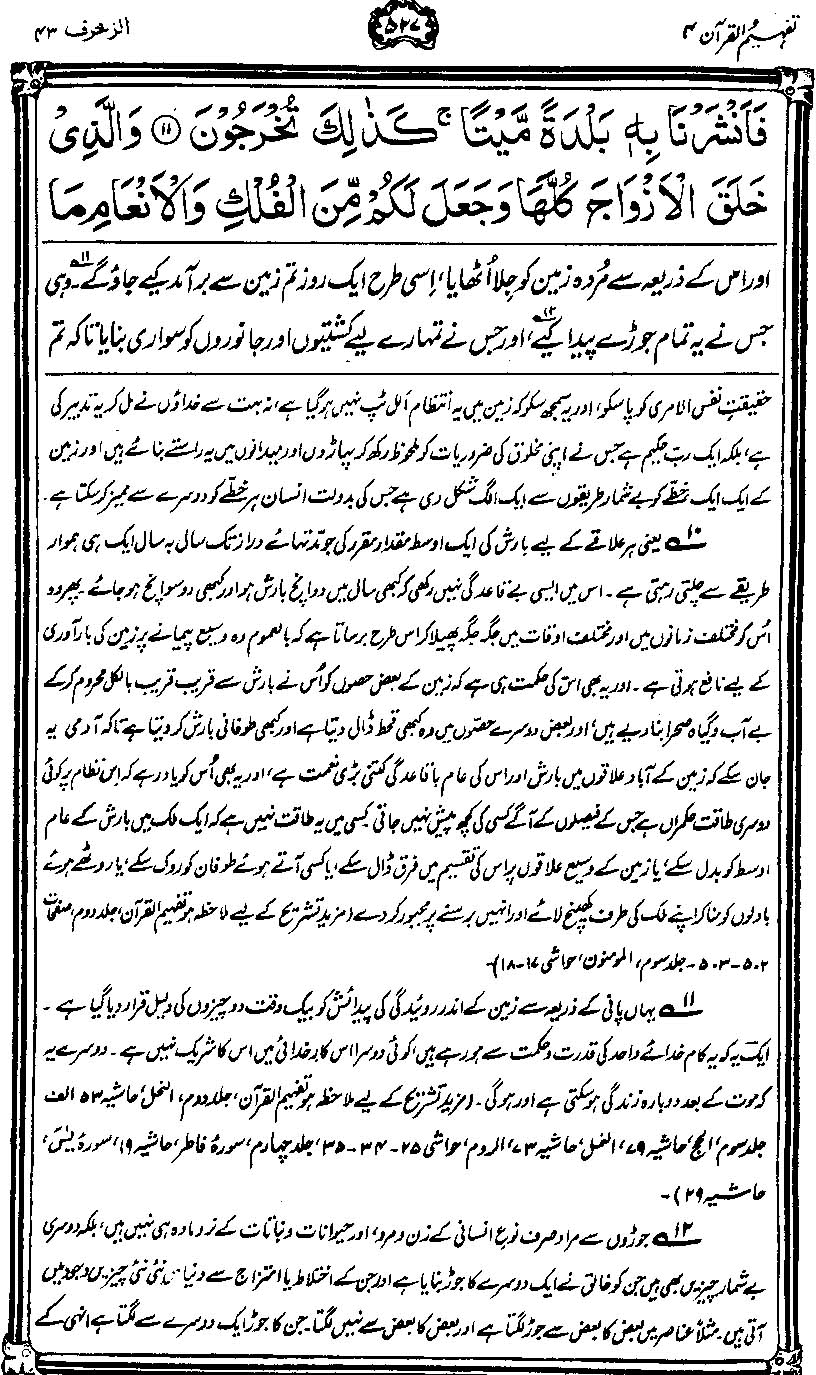 تفہیم القرآن ۴
۵۲۷
الزخرف ۴۳
فَاَنْشَرْنَا بِهٖ بَلْدَةً مَّيْتًا ۚ كَذٰلِكَ تُخْرَجُوْنَ ۝۱۱ وَالَّذِیْ
خَلَقَ الْاَزْوَاجَ كُلَّهَا وَجَعَلَ لَكُمْ مِّنَ الْفُلْكِ وَالْاَنْعَامِ مَا
اور اس کے ذریعہ سے مُردہ زمین کو جِلا اُٹھایا، اِسی طرح ایک روز تم زمین سے برآمد کیے جاؤ گے۔۱۱ وہی
جس نے یہ تمام جوڑے پیدا کیے،۱۲ اور جس نے تمہارے لیے کشتیوں اور جانوروں کو سواری بنایا تاکہ تم
حقیقتِ نفس الامری کو پا سکو، اور یہ سمجھ سکو کہ زمین میں یہ انتظام اَلل ٹپ نہیں ہو گیا ہے، نہ بہت سے خداؤں نے مل کر یہ تدبیر کی
ہے، بلکہ ایک ربِّ حکیم ہے جس نے اپنی مخلوق کی ضروریات کو ملحوظ رکھ کر پہاڑوں اور میدانوں میں یہ راستے بنائے ہیں اور زمین
کے ایک ایک خطے کو بے شمار طریقوں سے ایک الگ شکل دی ہے جس کی بدولت انسان ہر خطّے کو دوسرے سے ممیز کر سکتا ہے۔
۱۰ یعنی ہر علاقے کے لیے بارش کی ایک اوسط مقدار مقرر کی جو مدّتہائے دراز تک سال بہ سال ایک ہی ہموار
طریقے سے چلتی رہتی ہے۔ اس میں ایسی بے قاعدگی نہیں رکھی کہ کبھی سال میں دو انچ بارش ہو اور کبھی دو سو انچ ہو جائے۔ پھر وہ
اُس کو مختلف زمانوں میں اور مختلف اوقات میں جگہ جگہ پھیلا کر اس طرح برساتا ہے کہ بالعموم وہ وسیع پیمانے پر زمین کی بارآوری
کے لیے نافع ہوتی ہے۔ اور یہ بھی اس کی حکمت ہی ہے کہ زمین کے بعض حصوں کو اُس نے بارش سے قریب قریب بالکل محروم کر کے
بے آب و گیاہ صحرا بنا دیے ہیں، اور بعض دوسرے حصّوں میں وہ کبھی قحط ڈال دیتا ہے اور کبھی طوفانی بارش کر دیتا ہے تاکہ آدمی یہ
جان سکے کہ زمین کے آباد علاقوں میں بارش اور اس کی عام باقاعدگی کتنی بڑی نعمت ہے، اور یہ بھی اُس کو یاد رہے کہ اِس نظام پر کوئی
دوسری طاقت حکمراں ہے جس کے فیصلوں کے آگے کسی کی کچھ پیش نہیں جاتی۔ کسی میں یہ طاقت نہیں ہے کہ ایک ملک میں بارش کے عام
اوسط کو بدل سکے، یا زمین کے وسیع علاقوں پر اس کی تقسیم میں فرق ڈال سکے، یا کسی آتے ہوئے طوفان کو روک سکے، یا روٹھے ہوئے
بادلوں کو منا کر اپنے ملک کی طرف کھینچ لائے اور انہیں برسنے پر مجبور کر دے (مزید تشریح کے لیے ملاحظہ ہو تفہیم القرآن، جلد دوم، صفحات
۵۰۲-۵۰۳۔ جلد سوم، المومنون، حواشی ۱۷-۱۸)۔
۱۱ یہاں پانی کے ذریعہ سے زمین کے اندر روئیدگی کی پیدائش کو بیک وقت دو چیزوں کی دلیل قرار دیا گیا ہے۔
ایک یہ کہ یہ کام خدائے واحد کی قدرت و حکمت سے ہو رہے ہیں، کوئی دوسرا اس کارِ خدائی میں اس کا شریک نہیں ہے۔ دوسرے یہ
کہ موت کے بعد دوبارہ زندگی ہو سکتی ہے اور ہو گی۔ (مزید تشریح کے لیے ملاحظہ ہو تفہیم القرآن، جلد دوم، النحل، حاشیہ ۵۳ الف
جلد سوم، الحج، حاشیہ ۷۹، النمل، حاشیہ ۷۳، الروم، حواشی ۲۵-۳۴-۳۵، جلد چہارم، سورۂ فاطر، حاشیہ ۱۹، سورۂ یٰسٓ،
حاشیہ ۲۹)۔
۱۲ جوڑوں سے مراد صرف نوعِ انسانی کے زن و مرد، اور حیوانات و نباتات کے نر و مادہ ہی نہیں ہیں، بلکہ دوسری
بے شمار چیزیں بھی ہیں جن کو خالق نے ایک دوسرے کا جوڑ بنایا ہے اور جن کے اختلاط یا امتزاج سے دنیا میں نئی نئی چیزیں وجود میں
آتی ہیں۔ مثلاً عناصر میں بعض کا بعض سے جوڑ لگتا ہے اور بعض کا بعض سے نہیں لگتا۔ جن کا جوڑ ایک دوسرے سے لگتا ہے انہی کے